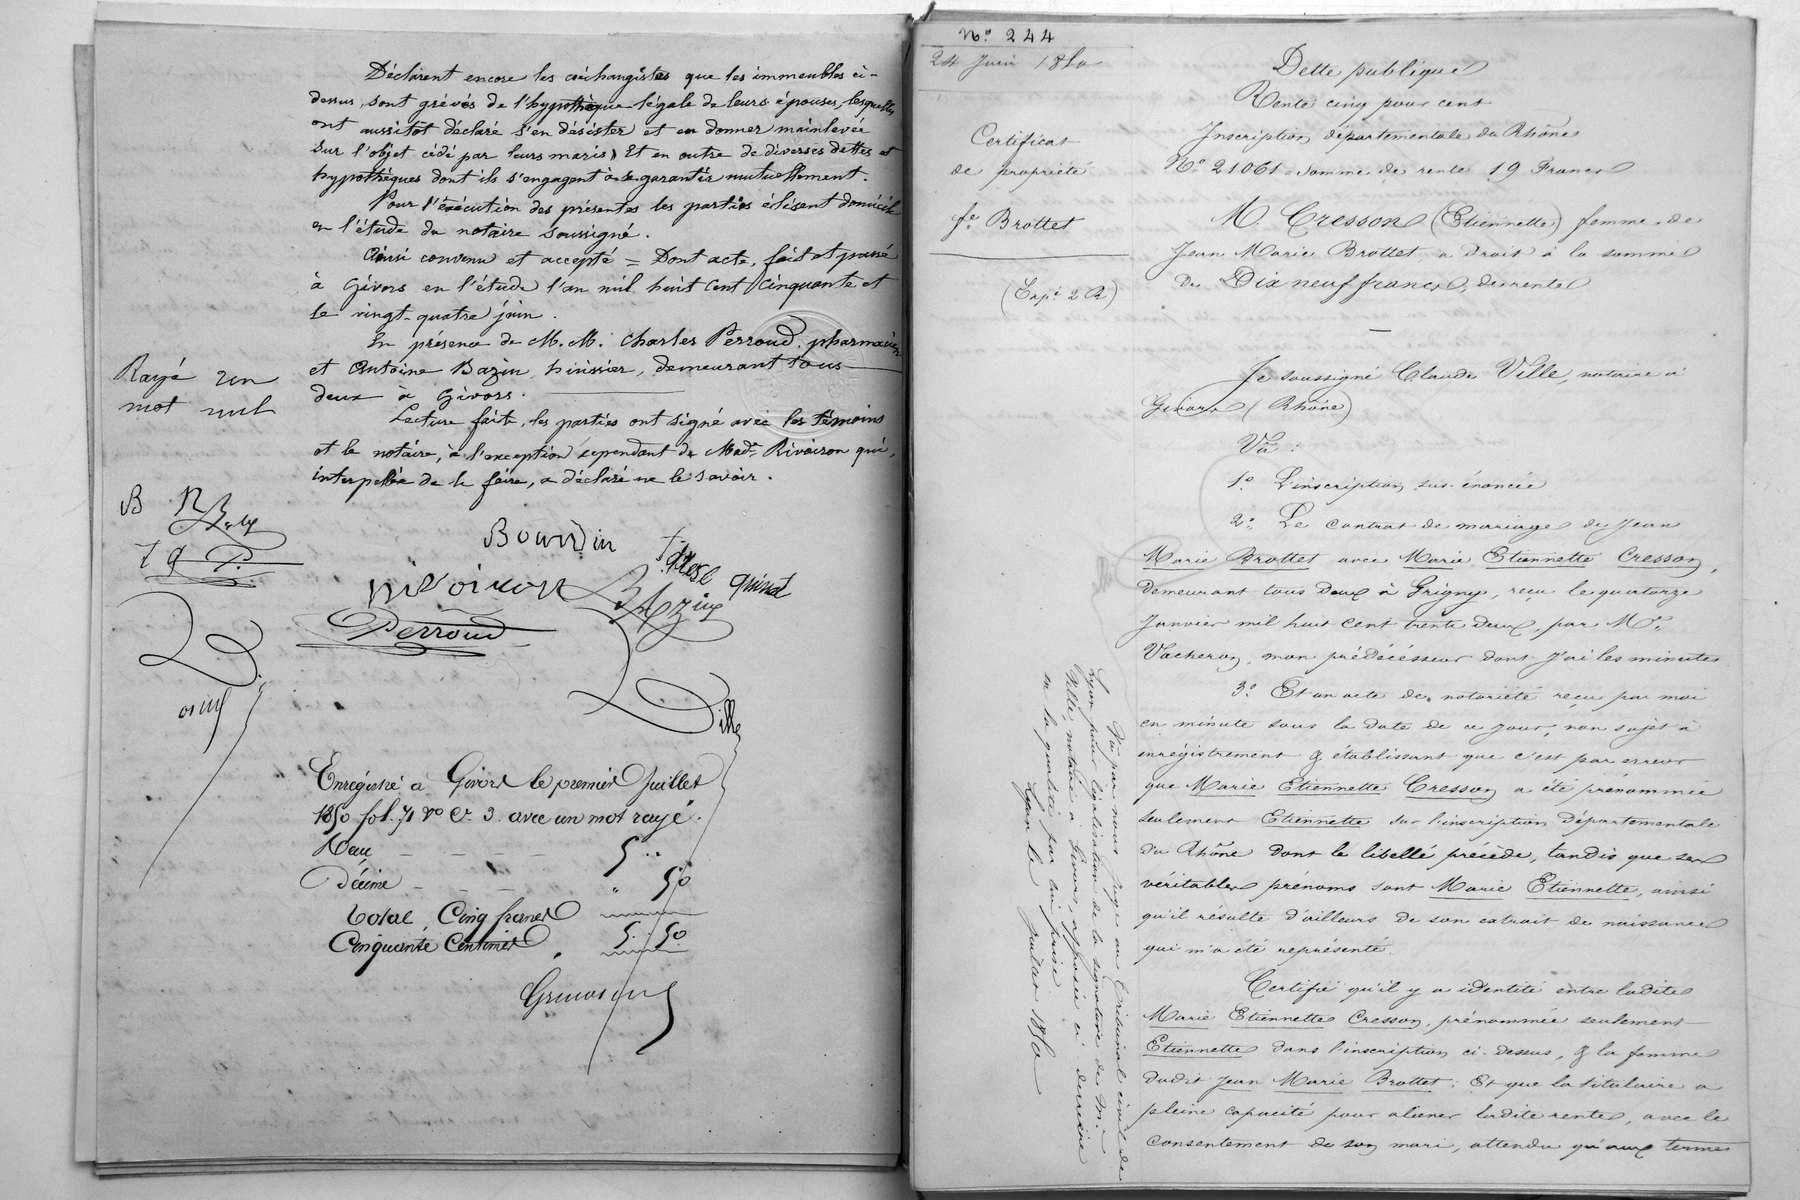 Déclarent encore les coéchangistes que les immeubles ci-
dessus, sont grévés de l'hypothèque légale de leurs épouses, lesquelles
ont aussitôt déclaré s'en désister et en donner mainlevée
sur l'objet cédé par leurs maris, Et en outre de diverses dettes et
hypothèques dont ils s'engagent à se garantir mutuellement.
Pour l'exécution des présentes les parties élisent domicile
en l'étude du notaire soussigné.
Ainsi convenu et accepté = Dont acte, fait et passé
à Givors en l'étude l'an mil huit cent cinquante et
le vingt-quatre juin.
En présence de M. M. Charles Perroud, pharmacien
et Antoine Bazin, huissier, demeurant tous
deux à Givors.
Lecture faite, les parties ont signé avec les témoins
et le notaire, à l'exception cependant de Made. Rivoiron qui,
interpellée de le faire, a déclaré ne le savoir.
Rayé un
mot nul
B R
P.
Bourdin
quinat
rivoiron
Bazin
Perroud
Ville
Enregistré à Givors le premier Juillet
1850 fol. 71 Vo C. 3. avec un mot rayé.
Reçu 5 "
Décime " 50
Total Cinq francs
Cinquante Centimes, 5. 50
No. 244
24 Juin 1850
Certificat
de propriété
fe. Brottet
(Expé 2 R)
Dette publique
Rente cinq pour cent
Inscription départementale du Rhône
No. 21061 = Somme de rente 19 Francs
M. Cresson (Etiennette) femme de
Jean Marie Brottet a droit à la somme
de Dix neuf francs, de rente
Je soussigné Claude Ville, notaire à
Givors (Rhône)
Vu :
1o. L'inscription sus-énoncée
2o. Le contrat de mariage de Jean
Marie Brottet avec Marie Etiennette Cresson,
demeurant tous deux à Grigny, reçu le quatorze
Janvier mil huit cent trente deux, par Me.
Vacheron, mon prédécésseur dont j'ai les minutes
3o. Et un acte de notoriété reçu par moi
en minute sous la date de ce jour, non sujet à
enregistrement & établissant que c'est par erreur
que Marie Etiennette Cresson a été prénommée
seulement Etiennette sur l'inscription départementale
du Rhône dont le libellé précède, tandis que ses
véritables prénoms sont Marie Etiennette, ainsi
qu'il résulte d'ailleurs de son extrait de naissance
qui m'a été représenté.
Certifie qu'il y a identité entre ladite
Marie Etiennette Cresson, prénommée seulement
Etiennette dans l'inscription ci-dessus, & la femme
dudit Jean Marie Brottet ; Et que la titulaire a
pleine capacité pour aliéner ladite rente, avec le
consentement de son mari, attendu qu'aux termes
Vu par nous juge au tribunal civil de
Lyon pour légalisation de la signature de Me.
Ville, notaire à Givors, apposée ci derrière
en la qualité par lui prise
Lyon le juillet 1850